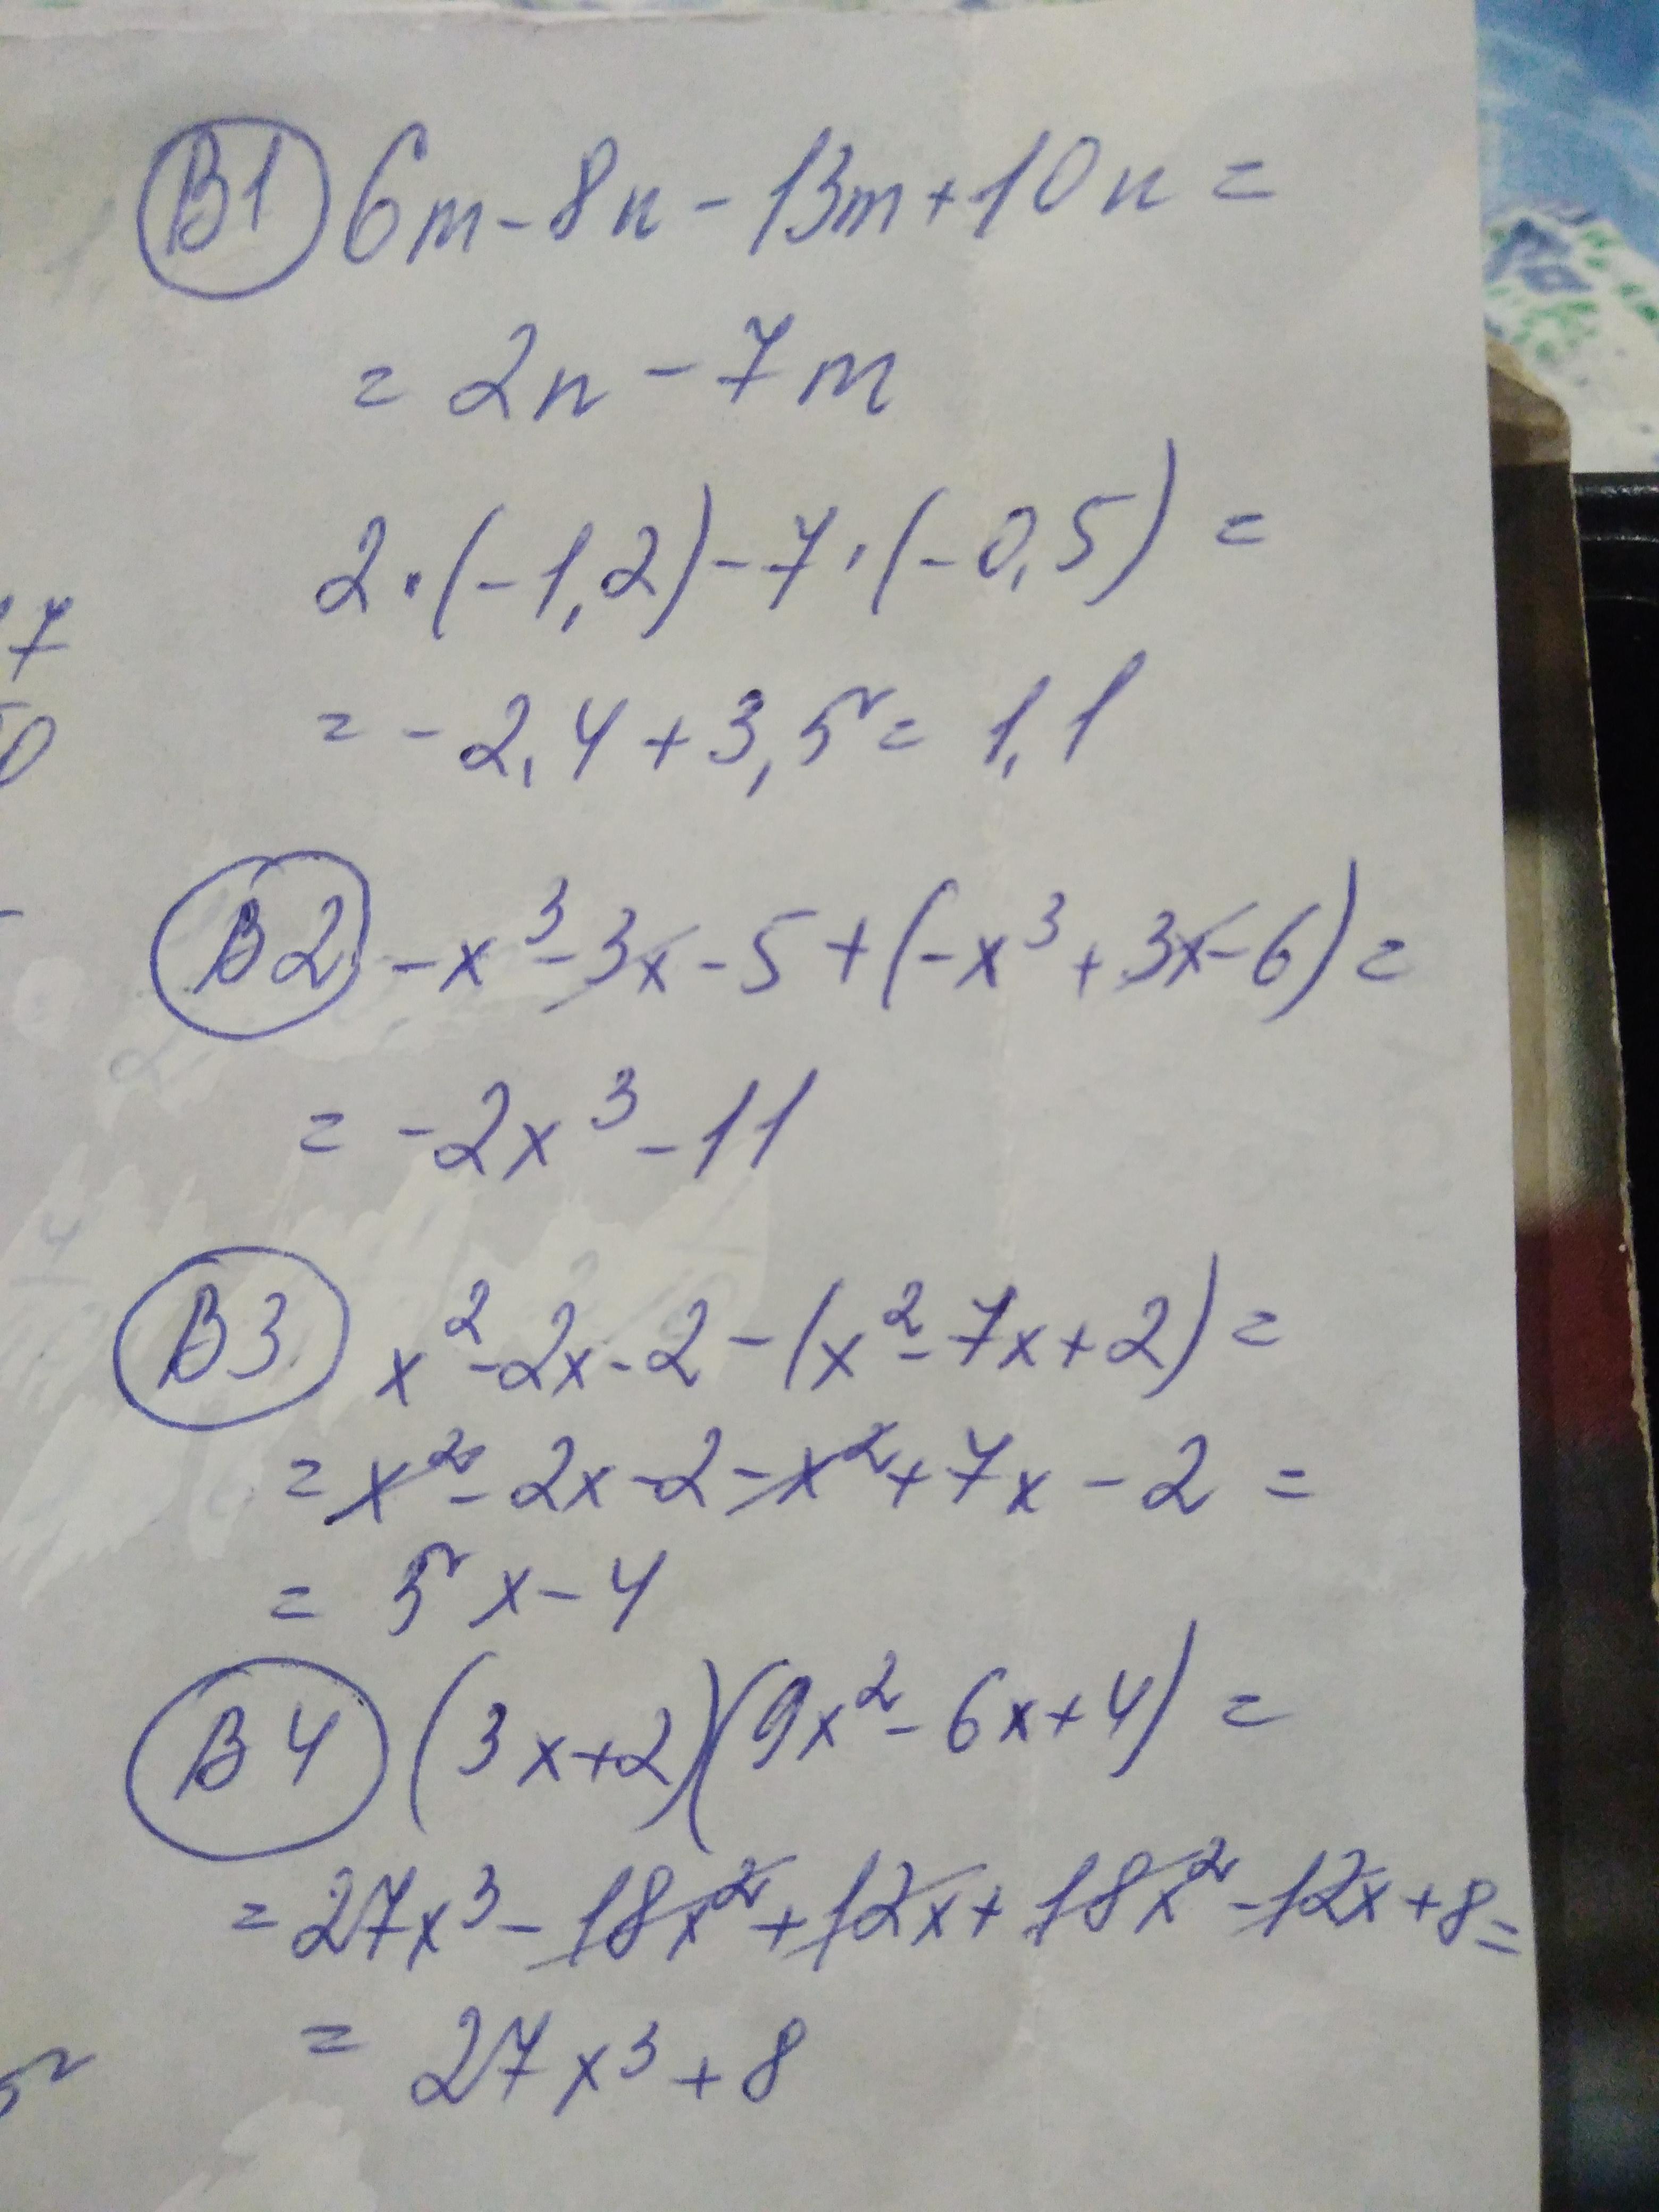 В1 6m - 8n - 13m + 10n =
= 2n - 7m
2·(-1,2) - 7·(-0,5) =
= -2,4 + 3,5 = 1,1
7
0
В2 -x³ - 3x - 5 + (-x³ + 3x - 6) =
= -2x³ - 11
В3 x² - 2x - 2 - (x² - 7x + 2) =
= x² - 2x - 2 - x² + 7x - 2 =
= 5x - 4
В4 (3x + 2)(9x² - 6x + 4) =
= 27x³ - 18x² + 12x + 18x² - 12x + 8 =
= 27x³ + 8